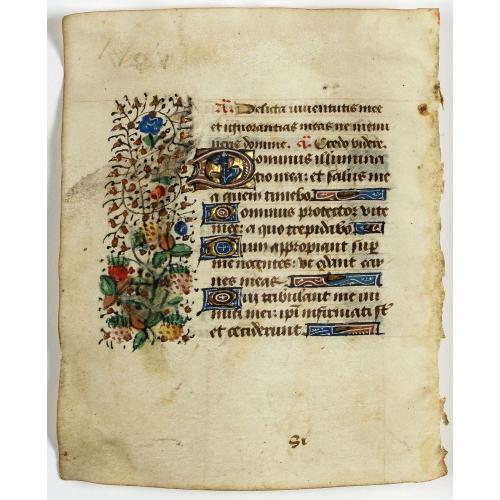 A Delicta iuventutis mee
et ignorantias meas ne memi
neris domine. A Credo videre.
Dominus illumina
tio mea: et salus me
a quem timebo.
Dominus protector vite
mee: a quo trepidabo.
Dum appropiant sup
me nocentes: ut edant car
nes meas.
Qui tribulant me ini
mici mei: ipi infirmati st
et ceciderunt.
Si